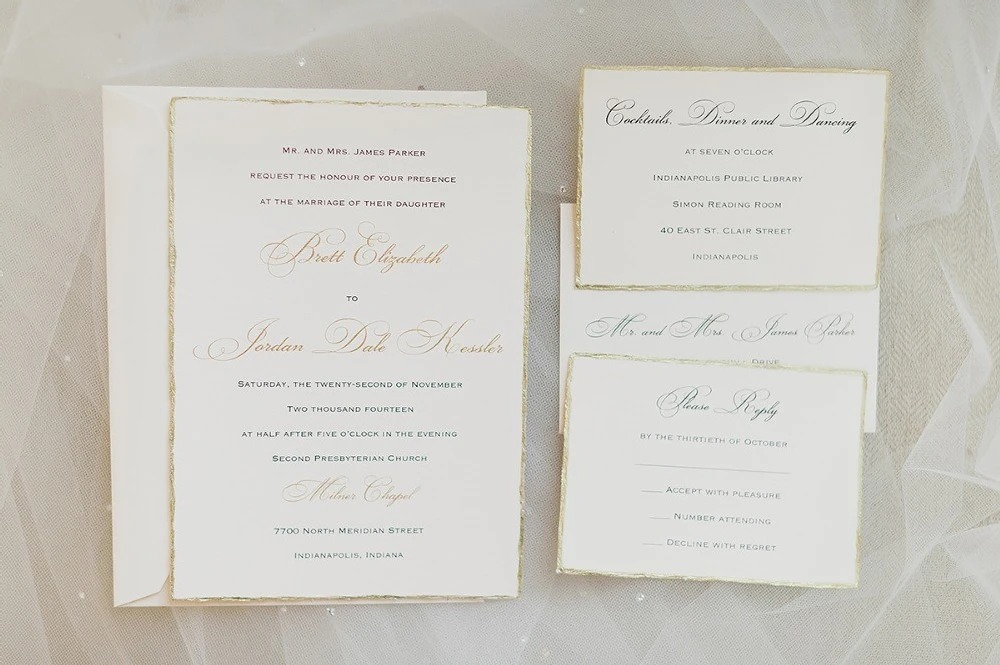 Mr. and Mrs. James Parker
request the honour of your presence
at the marriage of their daughter
Brett Elizabeth
to
Jordan Dale Kessler
Saturday, the twenty-second of November
Two thousand fourteen
at half after five o'clock in the evening
Second Presbyterian Church
Milner Chapel
7700 North Meridian Street
Indianapolis, Indiana
Cocktails, Dinner and Dancing
at seven o'clock
Indianapolis Public Library
Simon Reading Room
40 East St. Clair Street
Indianapolis
Mr. and Mrs. James Parker
Drive
Please Reply
by the thirtieth of October
Accept with pleasure
Number attending
Decline with regret